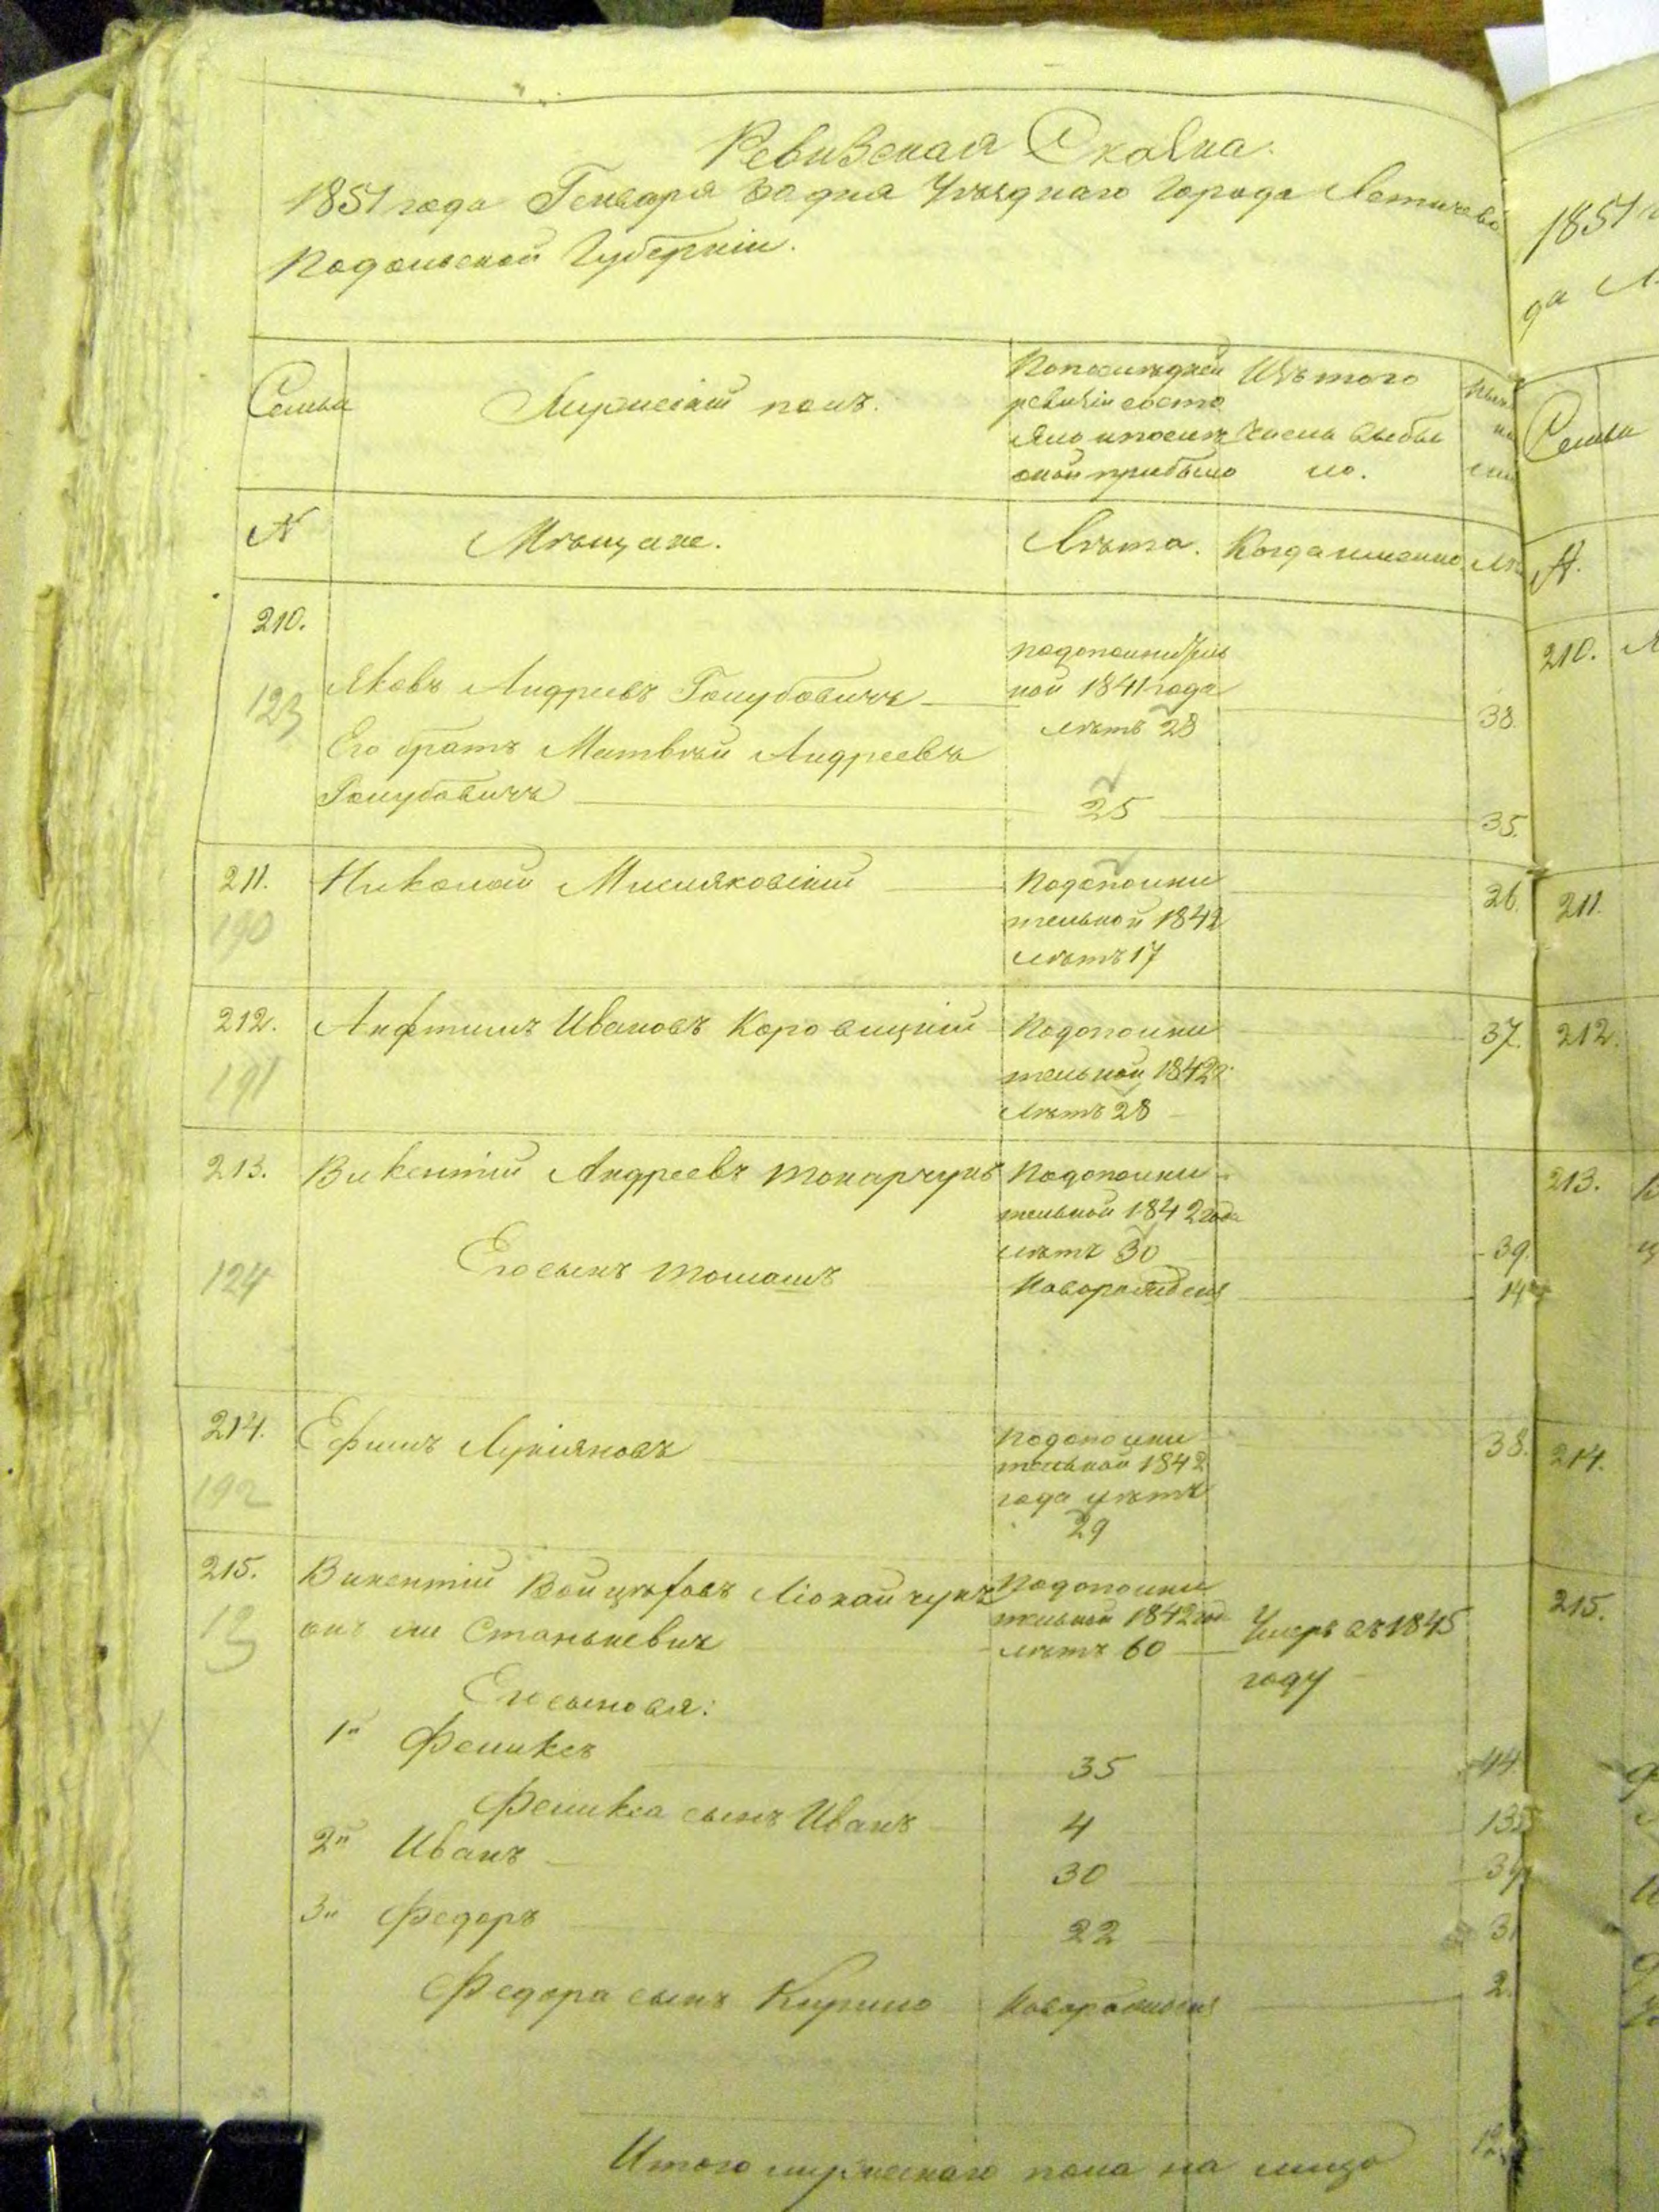 Ревизская Сказка.
1851 года Генваря 30 дня Уѣзднаго города Летичева
Подольской Губерніи.
Семьи
Мужескій полъ.
По последней ревизіи состояло и после оной прибыло
Изъ того числа выбыло.
№
Мѣщане.
Лѣта.
Когда именно.
210.
123
Яковъ Андреевъ Голубовичъ
по дополнитель
ной 1841 года
лѣтъ 28
38.
Его братъ Матвѣй Андреевъ
Голубовичъ
25
35.
211.
190
Николай Мисляковскій
По дополни
тельной 1842
лѣтъ 17
26.
212.
191
Анфтимъ Ивановъ Коровицкій
По дополни
тельной 1842 г.
лѣтъ 28
37.
213.
124
Викентій Андреевъ Токарчукъ
По дополни
тельной 1842 года
лѣтъ 30
39.
Его сынъ Томашъ
Новорожденъ
14
214.
192
Ефимъ Лукіяновъ
По дополни
тельной 1842
года лѣтъ
29
38.
215.
13
Викентій Войцѣховъ Локайчукъ
онъ же Станькевичъ
По дополни
тельной 1842 год
лѣтъ 60
Умеръ въ 1845
году
Его сыновья:
1й Феликсъ
35
44
Феликса сынъ Иванъ
4
13
2й Иванъ
30
39
3й Федоръ
22
31
Федора сынъ Кирило
Новорожденъ
2.
Итого мужескаго пола на лицо
1851
Семьи
№.
210.
211.
212.
213.
214.
215.